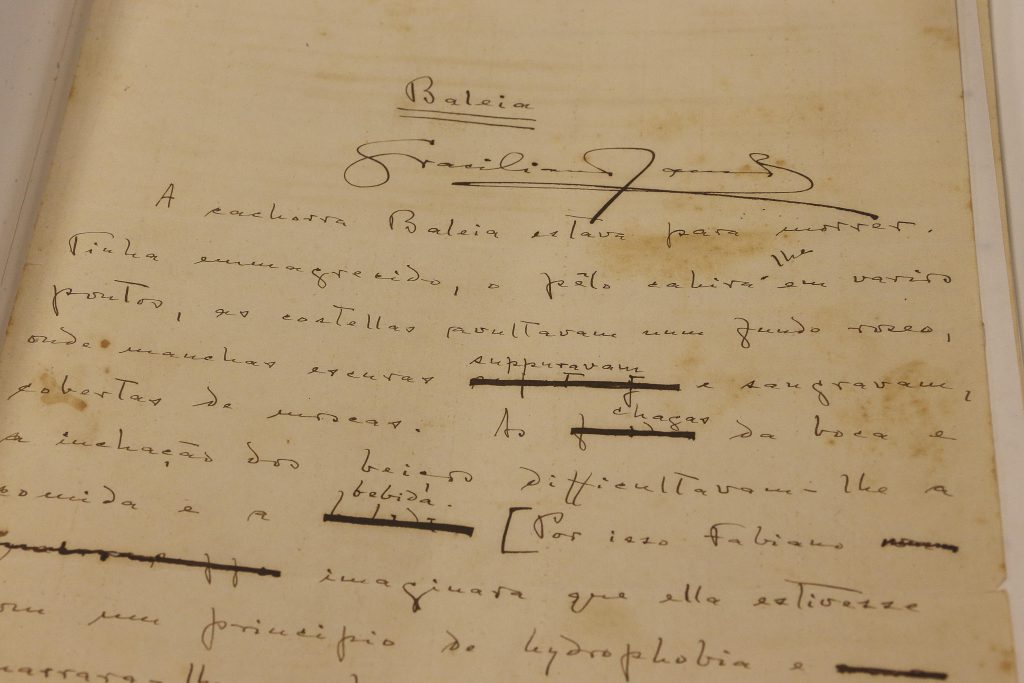 Baleia
Graciliano Ramos
A cachorra Baleia estava para morrer.
Tinha emmagrecido, o pêlo cahira-lhe em varios
pontos, as costellas avultavam num fundo roseo,
onde manchas escuras suppuravam e sangravam,
cobertas de moscas. As chagas da boca e
a inchação dos beiços difficultavam-lhe a
comida e a bebida. [Por isso Fabiano
imaginara que ella estivesse
om um principio de hydrophobia e